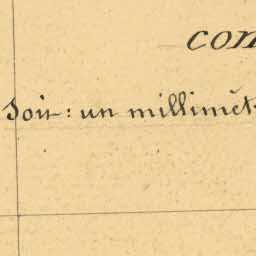 con
Soit: un millimèt